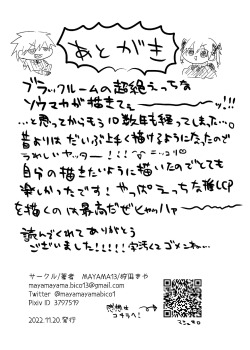 あとがき
ブラックルームの超絶えっちな
ソウマカが描きてぇ〜〜〜ッ!!!
…と思ってからもう10数年も経ってしまった…。
昔よりはだいぶ上手く描けるようになったので
うれしいヤッター!!!
自分の描きたいように描いたのでとても
楽しかったです! やっぱえっちな推しCP
を描くのは最高だぜヒャッハァー
読んでくれてありがとう
ございました!!!!!字汚くてゴメンね…
サークル/著者 MAYAMA13/
mayamayama.bico13@gmail.com
Twitter @mayamayamabico1
Pixiv ID 3797519
2022.11.20.発行
感想は
コチラへ!